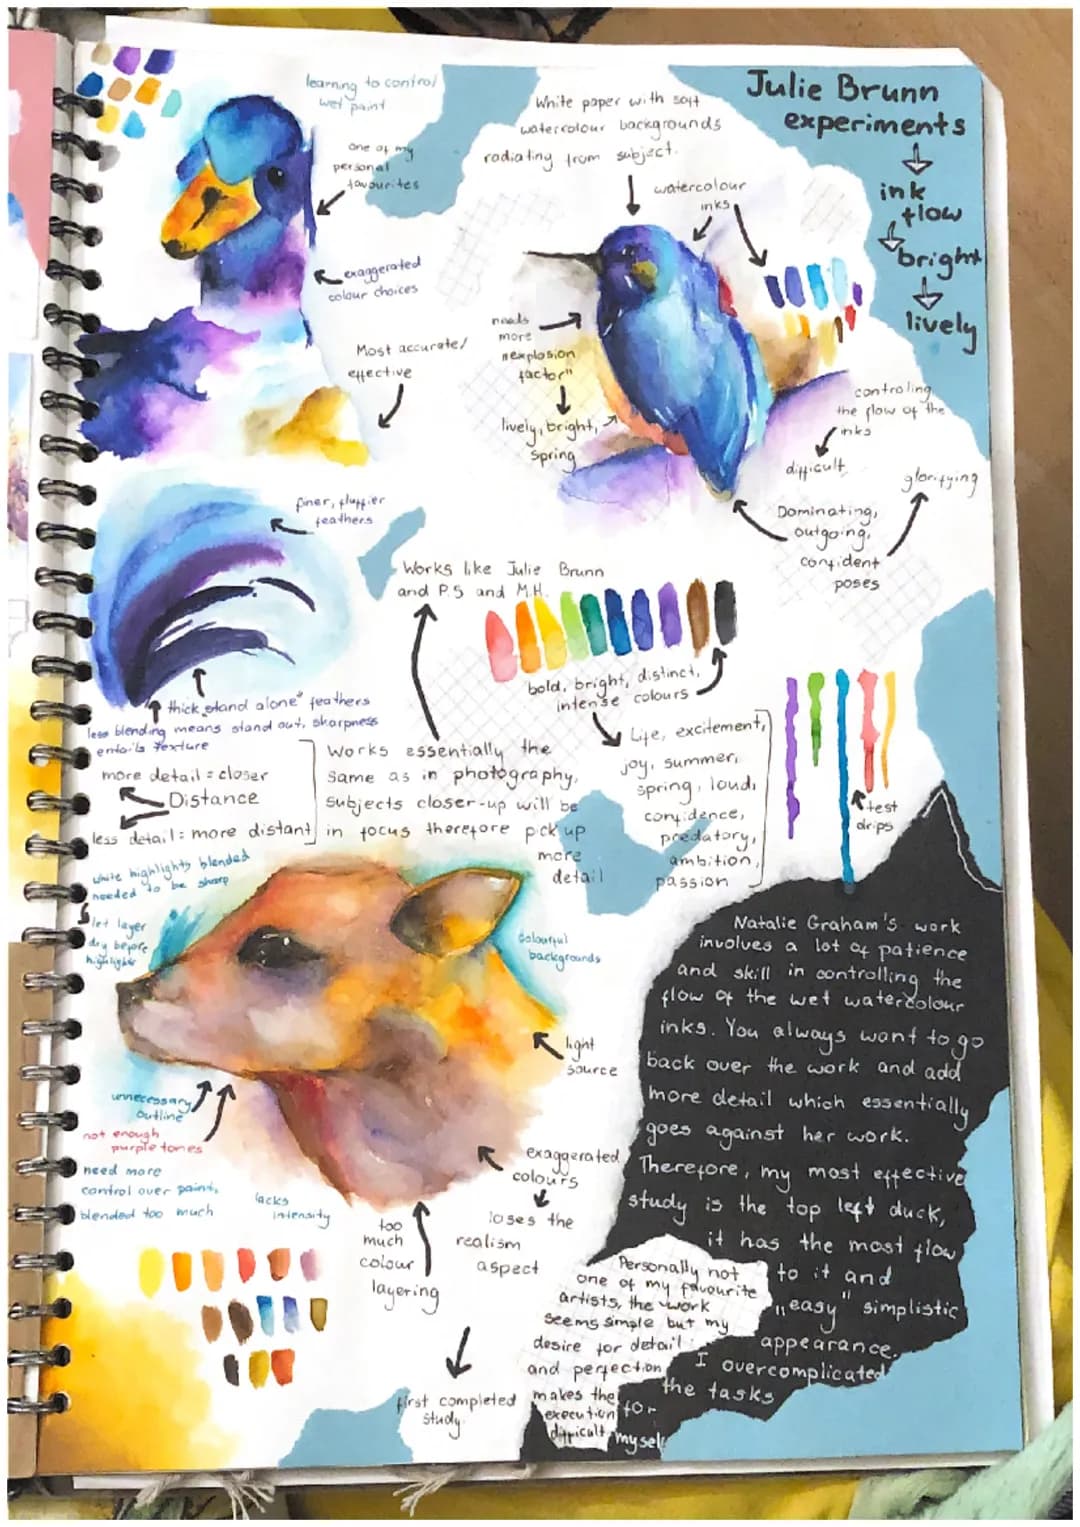 Julie Brunn
experiments
ink
flow
bright
lively
learning to control
wet paint
one of my
personal
favourites
exaggerated
colour choices
Most accurate/
effective
White paper with soft
watercolour backgrounds
radiating from subject.
watercolour
inks
needs
more
"explosion
factor"
lively, bright,
spring
controling
the flow of the
inks
difficult
glorifying
Dominating,
outgoing,
confident
poses
finer, fluffier
feathers
thick "stand alone" feathers
less blending means stand out, sharpness
entails texture
Works like Julie Brunn
and P.S and M.H.
bold, bright, distinct,
intense colours
Life, excitement,
joy, summer,
spring, loud,
confidence,
predatory,
ambition,
passion
test
drips
more detail = closer
Distance
less detail = more distant
Works essentially the
same as in photography,
subjects closer-up will be
in focus therefore pick up
more
detail
white highlights blended
needed to be sharp
let layer
dry before
highlighter
colourful
backgrounds
light
source
unnecessary
outline
not enough
purple tones
need more
control over paint,
blended too much
lacks
intensity
too
much
colour
layering
exaggerated
colours
loses the
realism
aspect
first completed
study.
Natalie Graham's work
involves a lot of patience
and skill in controlling the
flow of the wet watercolour
inks. You always want to go
back over the work and add
more detail which essentially
goes against her work.
Therefore, my most effective
study is the top left duck,
it has the most flow
to it and
"easy" simplistic
appearance.
I overcomplicated
the tasks
for
myself
Personally not
one of my favourite
artists, the work
seems simple but my
desire for detail
and perfection
makes the
execution
difficult